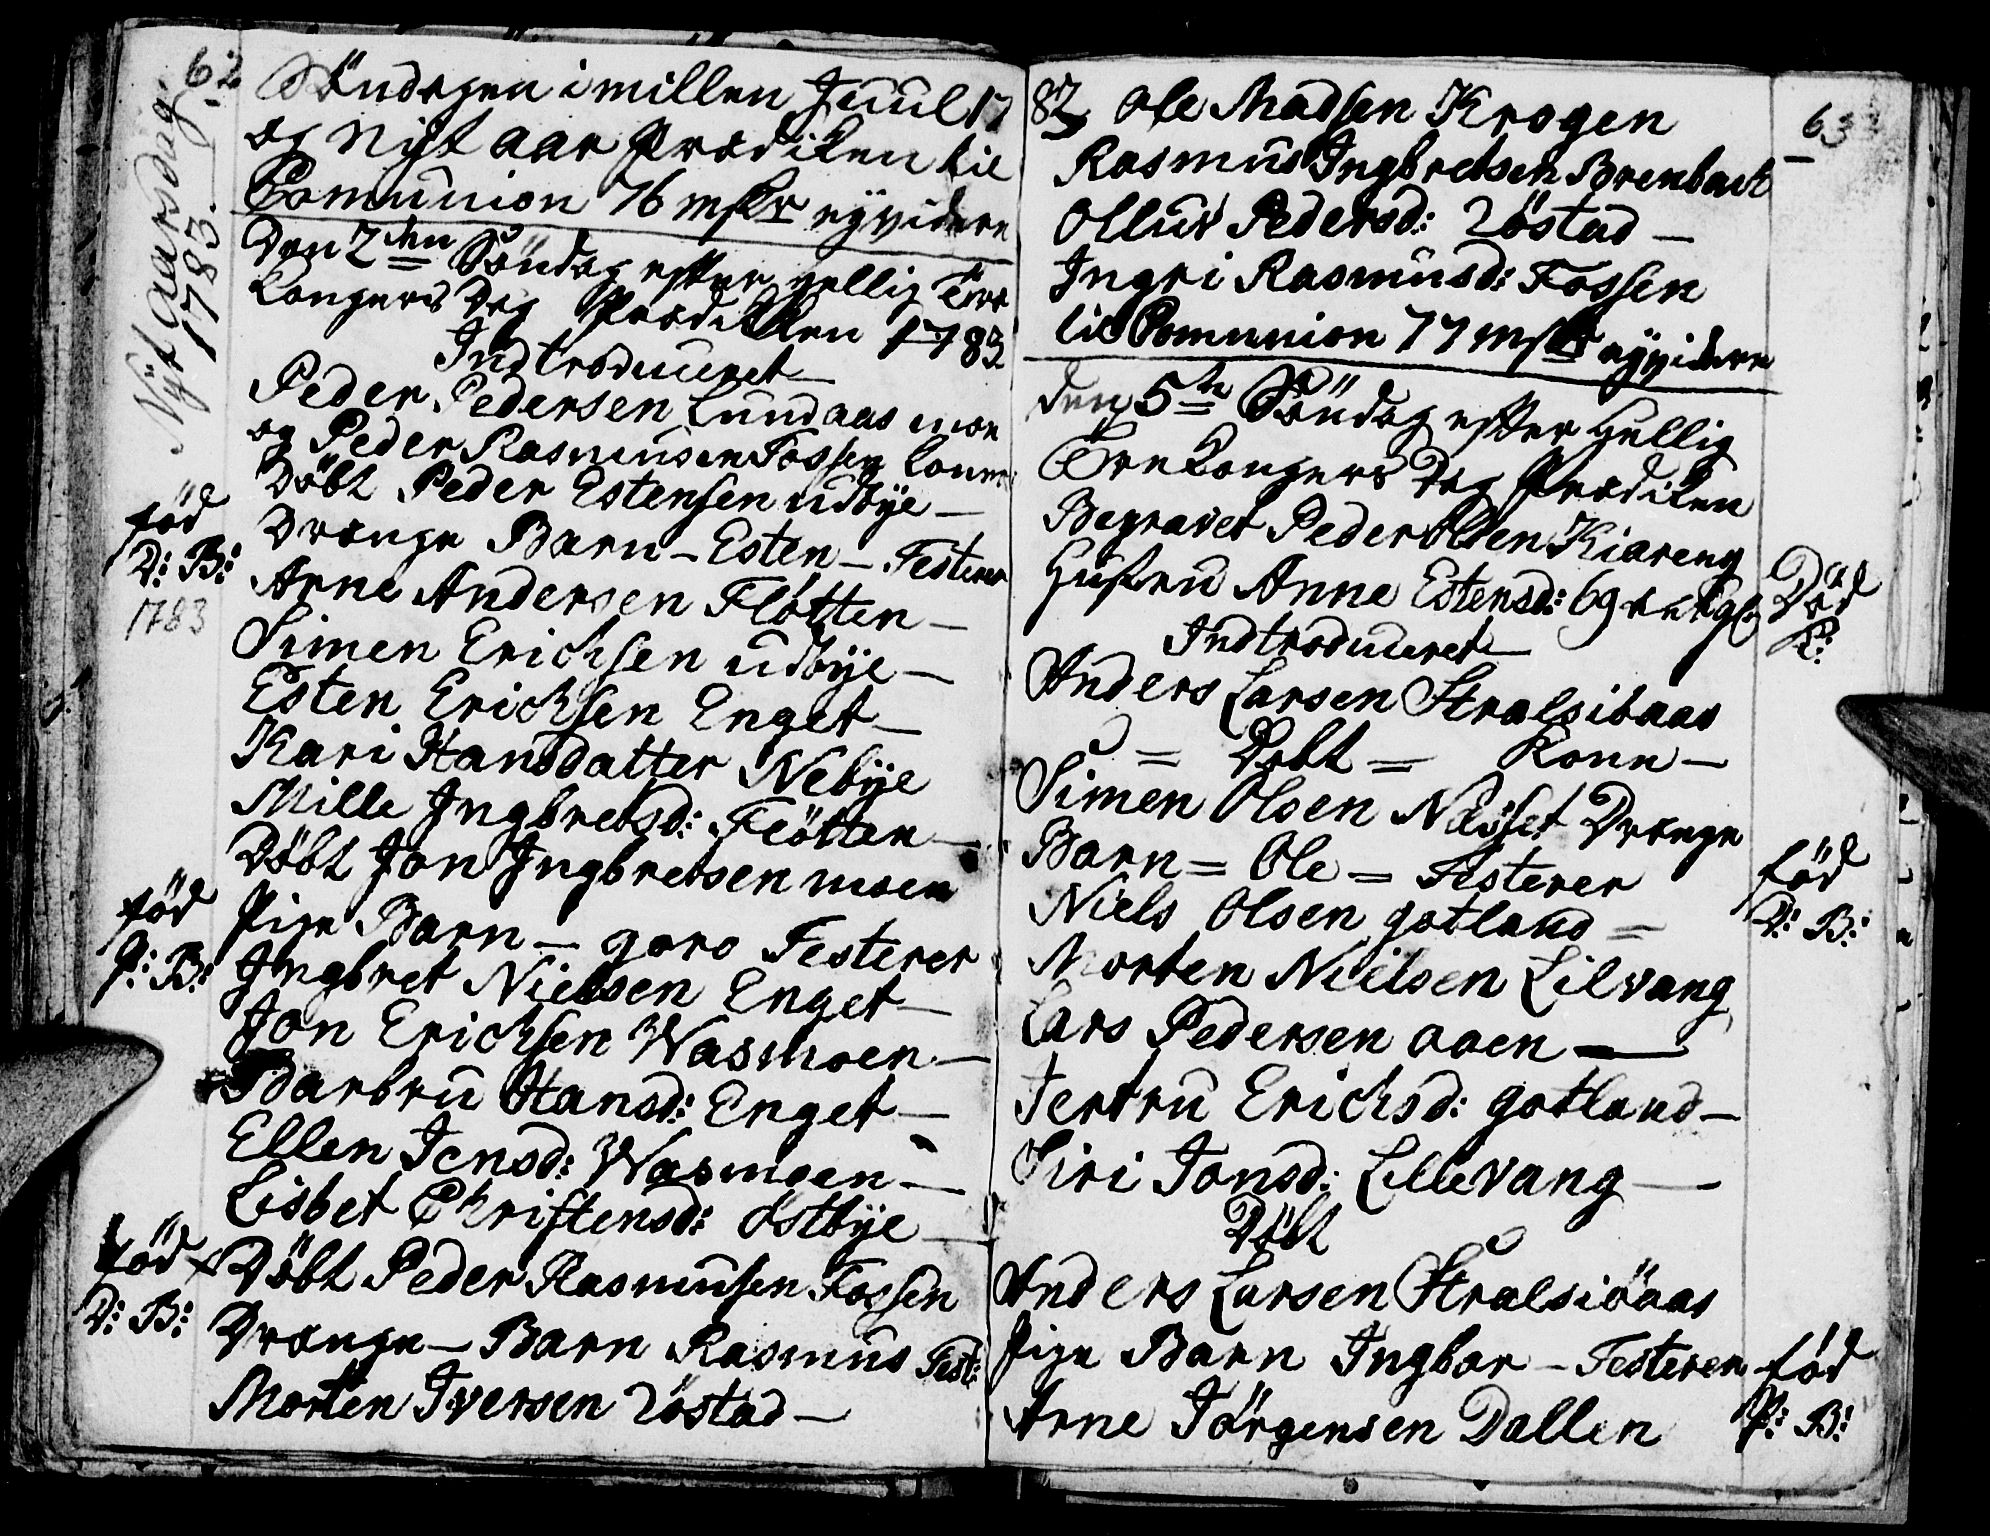 62
Nÿt aarsdag
1783.
Söndagen imillem Juul 17
og Nÿt aar Prædiken til
Comunion 76 msker
Den 2den Söndag efter hellig Tre
Kongers Dag Prædiken 1783
Indtroduceret
Peder Pedersen Lundaas
og Peder Rasmusen Fossen
Döbt Peder Estensen udbÿe —
Drænge Barn — Esten — Festerer
Arne Andersen Flötten —
Simen Erichsen udbÿe —
Esten Erichsen Enget —
Kari Hansdatter Nebÿe
Mille Ingbretsd: Flötten —
Döbt Jon Ingbretsen moen
Pige Barn — goro Festerer
Ingbret Nielsen Enget —
Jon Erichsen Wasmoen —
Barbru Hansd: Enget —
Ellen Jensd: Wasmoen —
Lisbet Christensd: östbÿe —
Döbt Peder Rasmusen Fossen
Drænge — Barn Rasmus Fest:
Morten Iversen Röstad —
föd
D: B:
1783
föd
P: B:
föd
D: B:
82 Ole Madsen Krogen
Rasmus Ingbretsen
Olluv Pedersd: Röstad —
Ingri Rasmusd: Fossen
til Comunion 77 msker
den 5te Söndag efter Hellig
Tre Kongers Dag Prædiken
Begravet Peder Olsen Kiæreng
Hustru Anne Estensd: 69
Indtroduceret —
Anders Larsen
= Döbt = Kone —
Simen Olsen Næsset Drænge
Barn = Ole = Festerer
Niels Olsen gotland =
Morten Nielsen Lilvang
Lars Pedersen aaen —
Jertru Erichsd: gotland —
Siri Jonsd: Lillevang —
Döbt
Anders Larsen
Pige Barn Ingbor — Festerer
Arne Jörgensen Dallen
63
Död
K:
föd
D: B:
föd
P: B: